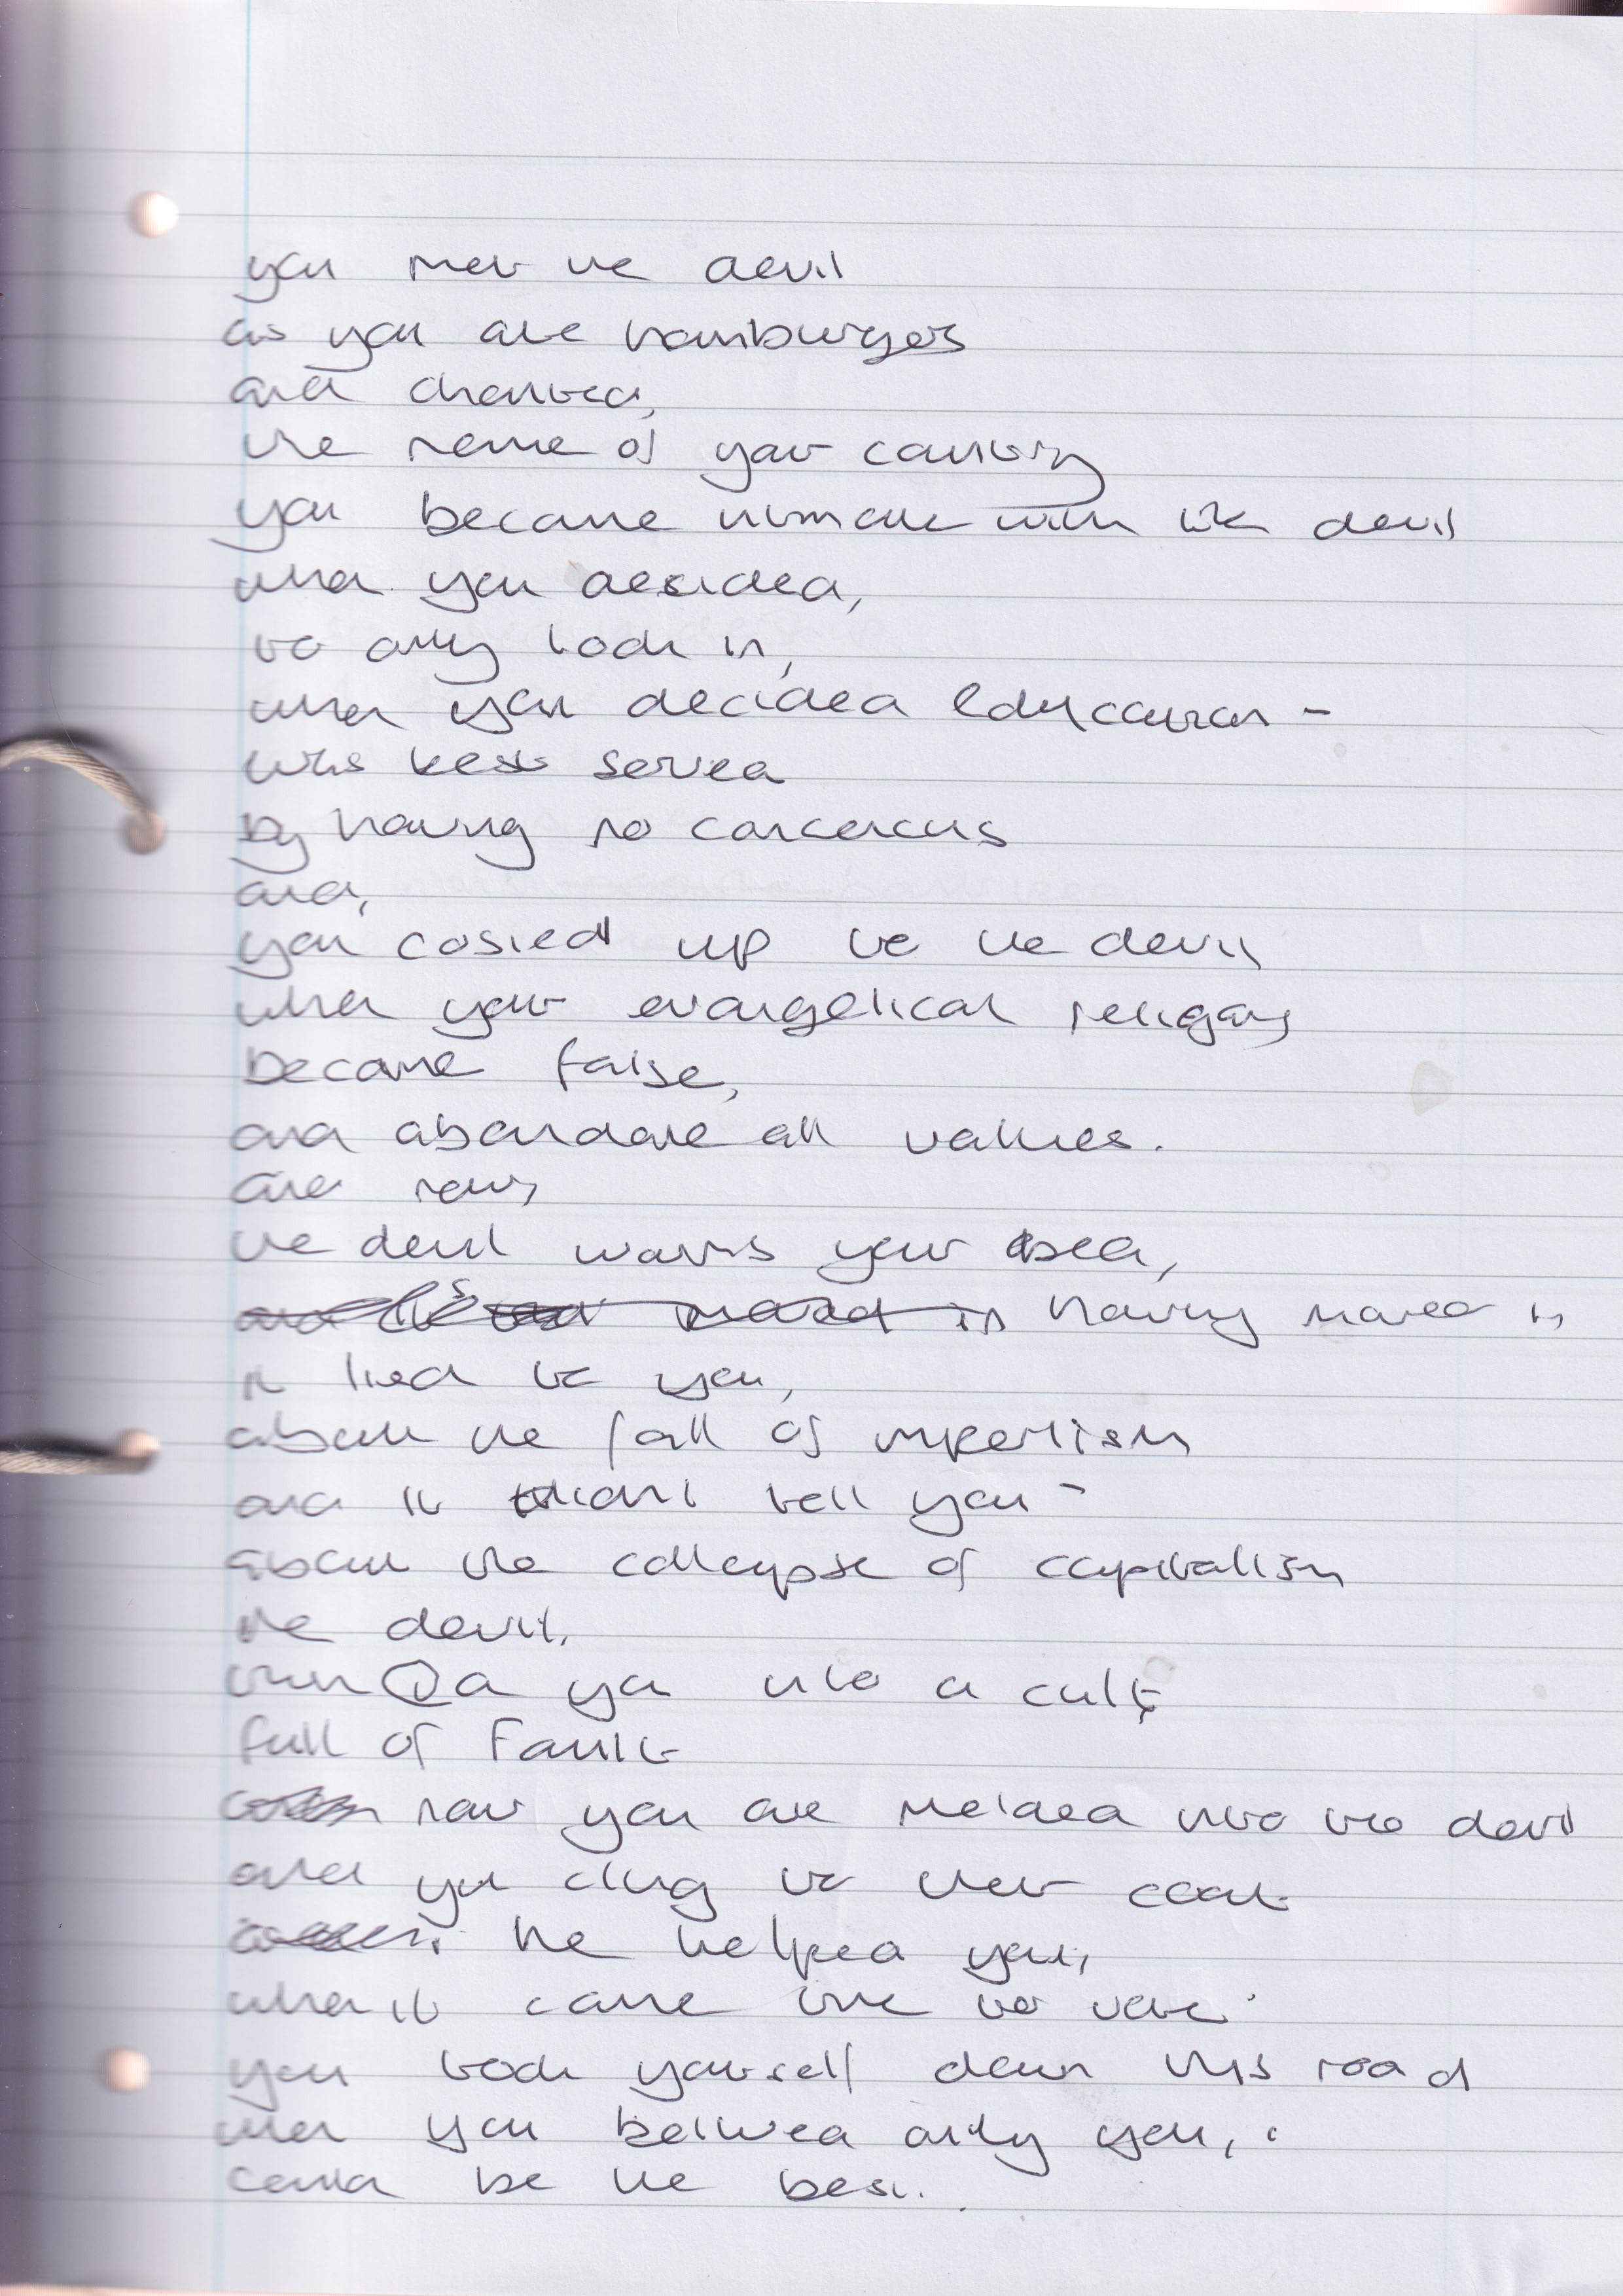 you met the devil
as you ate hamburgers
and chanted,
the name of your country
you became intimate with the devil
when you desided,
to only look in,
when you decided Education -
was best served
by having no conscious
and,
you cosied up to the devil
when your evangelical religons
became false,
and abandone all values.
and now,
the devil warms your bed,
having moved in
it lied to you,
about the fall of imperilism
and it didnt tell you -
about the collapse of capitalism
the devil,
turned you into a cult,
full of fault
now you are melded into the devil
and you cling to their coat
he helped you,
when it came time to vote
you took yourself down this road
when you belived only you,
could be the best.